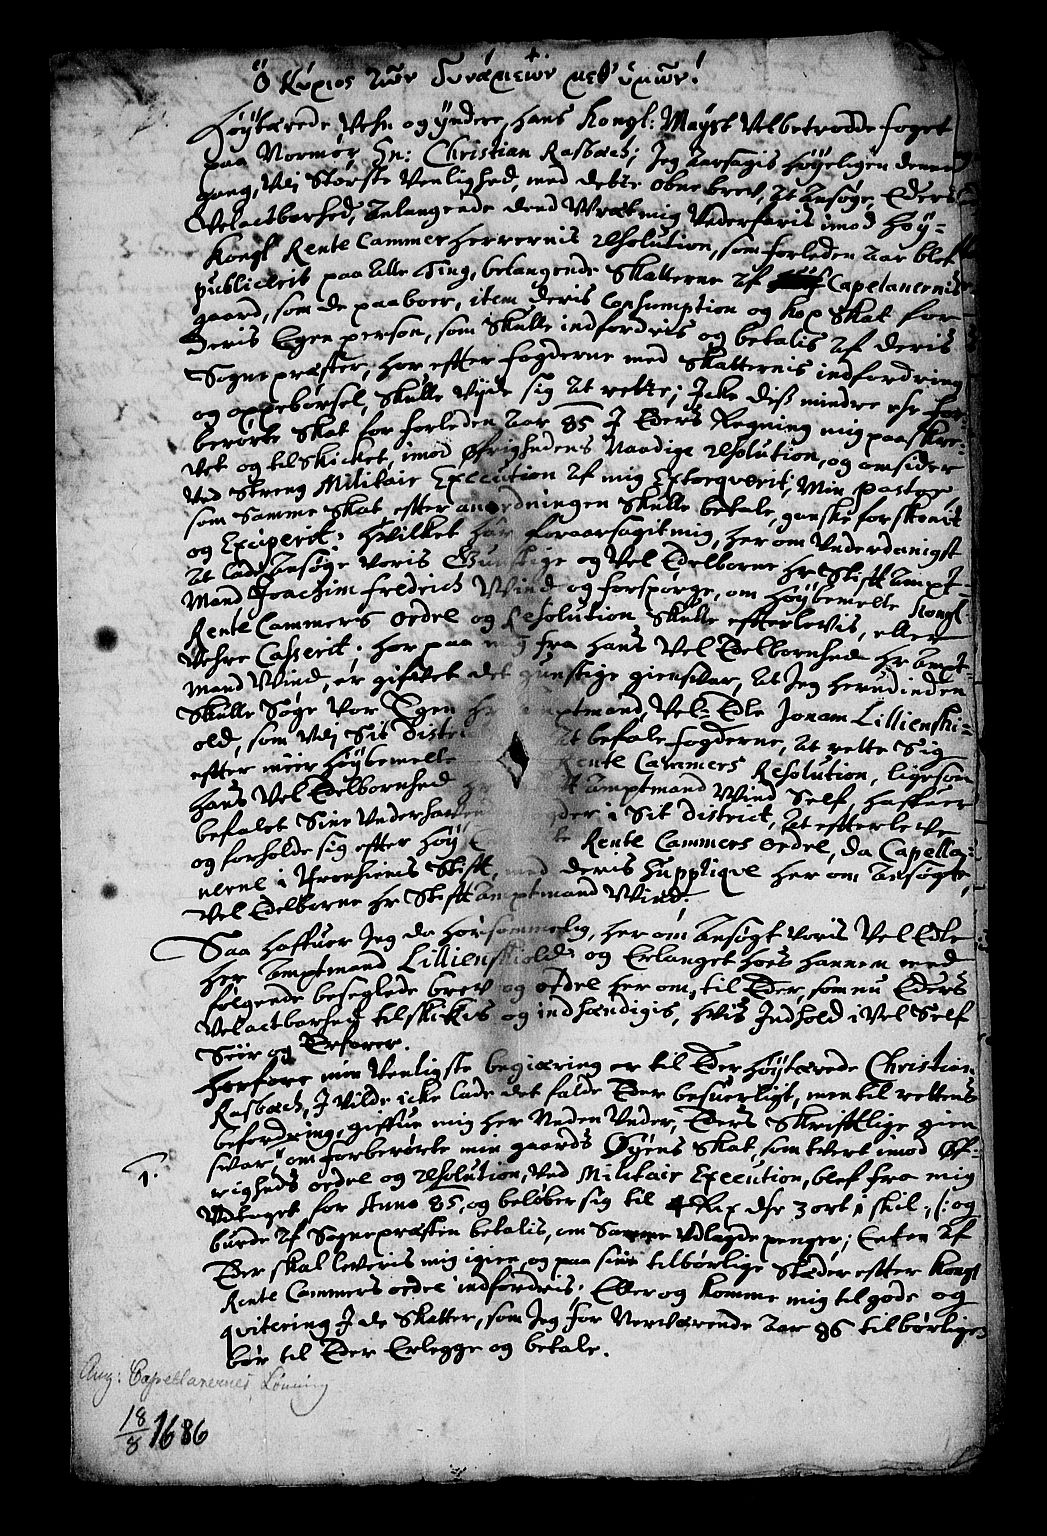 Ὁ Κύριος τῶν δυνάμεων μεθ' ὑμῶν!
Høytærede Vehn og Yndere, Hans Kongl: Mayst Velbetrodde foget
paa Normør, Hr: Christian Rasbech; Jeg aarsagis høyeligen denne
gang, Vei Største Venlighed, med dette obne brev, at ansøge, Eders
Velactbarhed, anlangende dend Wræt mig Vederfaris imod Høy=
Kongl Rente Cammer Herrernis resolution, som forleden aar blef
publicerit paa alle Ting, belangende Skatterne af Capelanernis
gaard, som de paaboer, item deris Consumption og Kop Skat for
deris Egen person, som Skulle indfordris og betalis af deris
Sognepræster, hor efter fogderne med Skatternis indfordring
og oppebørsel, Skulle Vide sig at rette; Icke dis mindre ehr for-
berørte Skat for forleden aar 85 I Eders Regning mig paaskre-
vet og tilskicket, imod Øfrighedens Naadige resolution, og omsider
Ved Streng Militair Execution af mig Extorqverit, Min pastor
som Samme Skat efter anordningen Skulle betale, ganske forskonit
og Exciperit: Hvilket har foraarsagit mig, her om Underdanigst
at lade ansøge Voris Gunstige og Vel Edelborne Hr Stifft Ampt-
Mand Joachim Fredrich Vind og forspørge, om Høybemelte Kongl
Rente Cammers ordel og Resolution Skulle efterlevis, eller
Vehre Casserit; hor paa mig fra Hans Vel Edelbornhed Hr Ampt-
mand Vind, er gifvet det gunstige giensvar, at Jeg herudinden
Skulle Søge Vor Egen Hr Amptmand, Vel= Edle Jonam Lillienski-
old, som Vei Sit District at befale fogderne, at rette Sig
efter meer Høybemelte Rente Cammers Resolution, ligesom
Hans Vel Edelbornhed Hr Stifft Amptmand Vind Self, haffuer
befalet Sine Underhavende fogder i Sit District, at efterleve
og forholde sig efter Høy Rente Cammers ordel, da Capella-
nerne i Tronhiems Stift, med deris Supplique her om ansøgte,
Vel Edelborne Hr Stifft Amptmand Vind.
Saa haffuer Jeg da hørsommelig, her om ansøgt Voris Vel Edle
Her Amptmand Lillienskiold, og Erlanget hoes hannem med
følgende beseglede brev og ordel her om, til Eder, som nu Eders
Velactbarhed tilskickis og indhændigis, hvis Indhold i Vel Self
Seer og Erfarer.
Herfore min Venligste begiæring er til Eder Høytærede Christian
Rasbech, I Vilde icke lade det falde Eder besuerligt, men til rettens
befordring, giffue mig her Neden Under, Eders Skrifftlige gien
svar om forberørte min gaards Øyens Skat, som tvert imod Øf-
righeds ordel og resolution, Ved Militair Execution, blef fra mig
1. Udlaget for Anno 85, og beløber sig til 4 Rix dlr 3 ort 1 skil:, (: og
burde af Sognepræsten betalis, om Samme Udlagde penger; Enten af
Eder skal leveris mig igien, og paa sine tilbørlige Stæder efter Kongl
Rente Cammers ordel indfordris; Eller og Komme mig til gode og
qvitering I de Skatter, som Jeg for Nerværende aar 86 tilbørligen
bør til Eder Erlegge og betale.
Ang: Capellanernes Lønning
18/8 1686